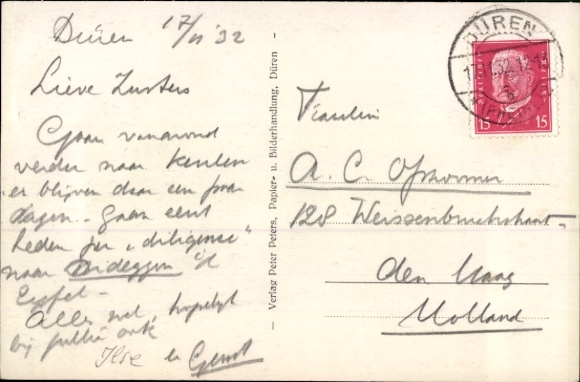 Düren 17/VI '32
Lieve Zusters
Gaan vanavond
verder naar Keulen
en blijven daar een paar
dagen - Gaan eerst
heden per "diligence"
naar Nideggen i/d
Eifel -
Alles wel, hopelijk
bij jullie ook
Ilse en Gerrit
Verlag Peter Peters, Papier- u. Bilderhandlung, Düren
DÜREN
15 15
Fräulein
A. C.
128 Weissenbruchstraat
den Haag
Holland